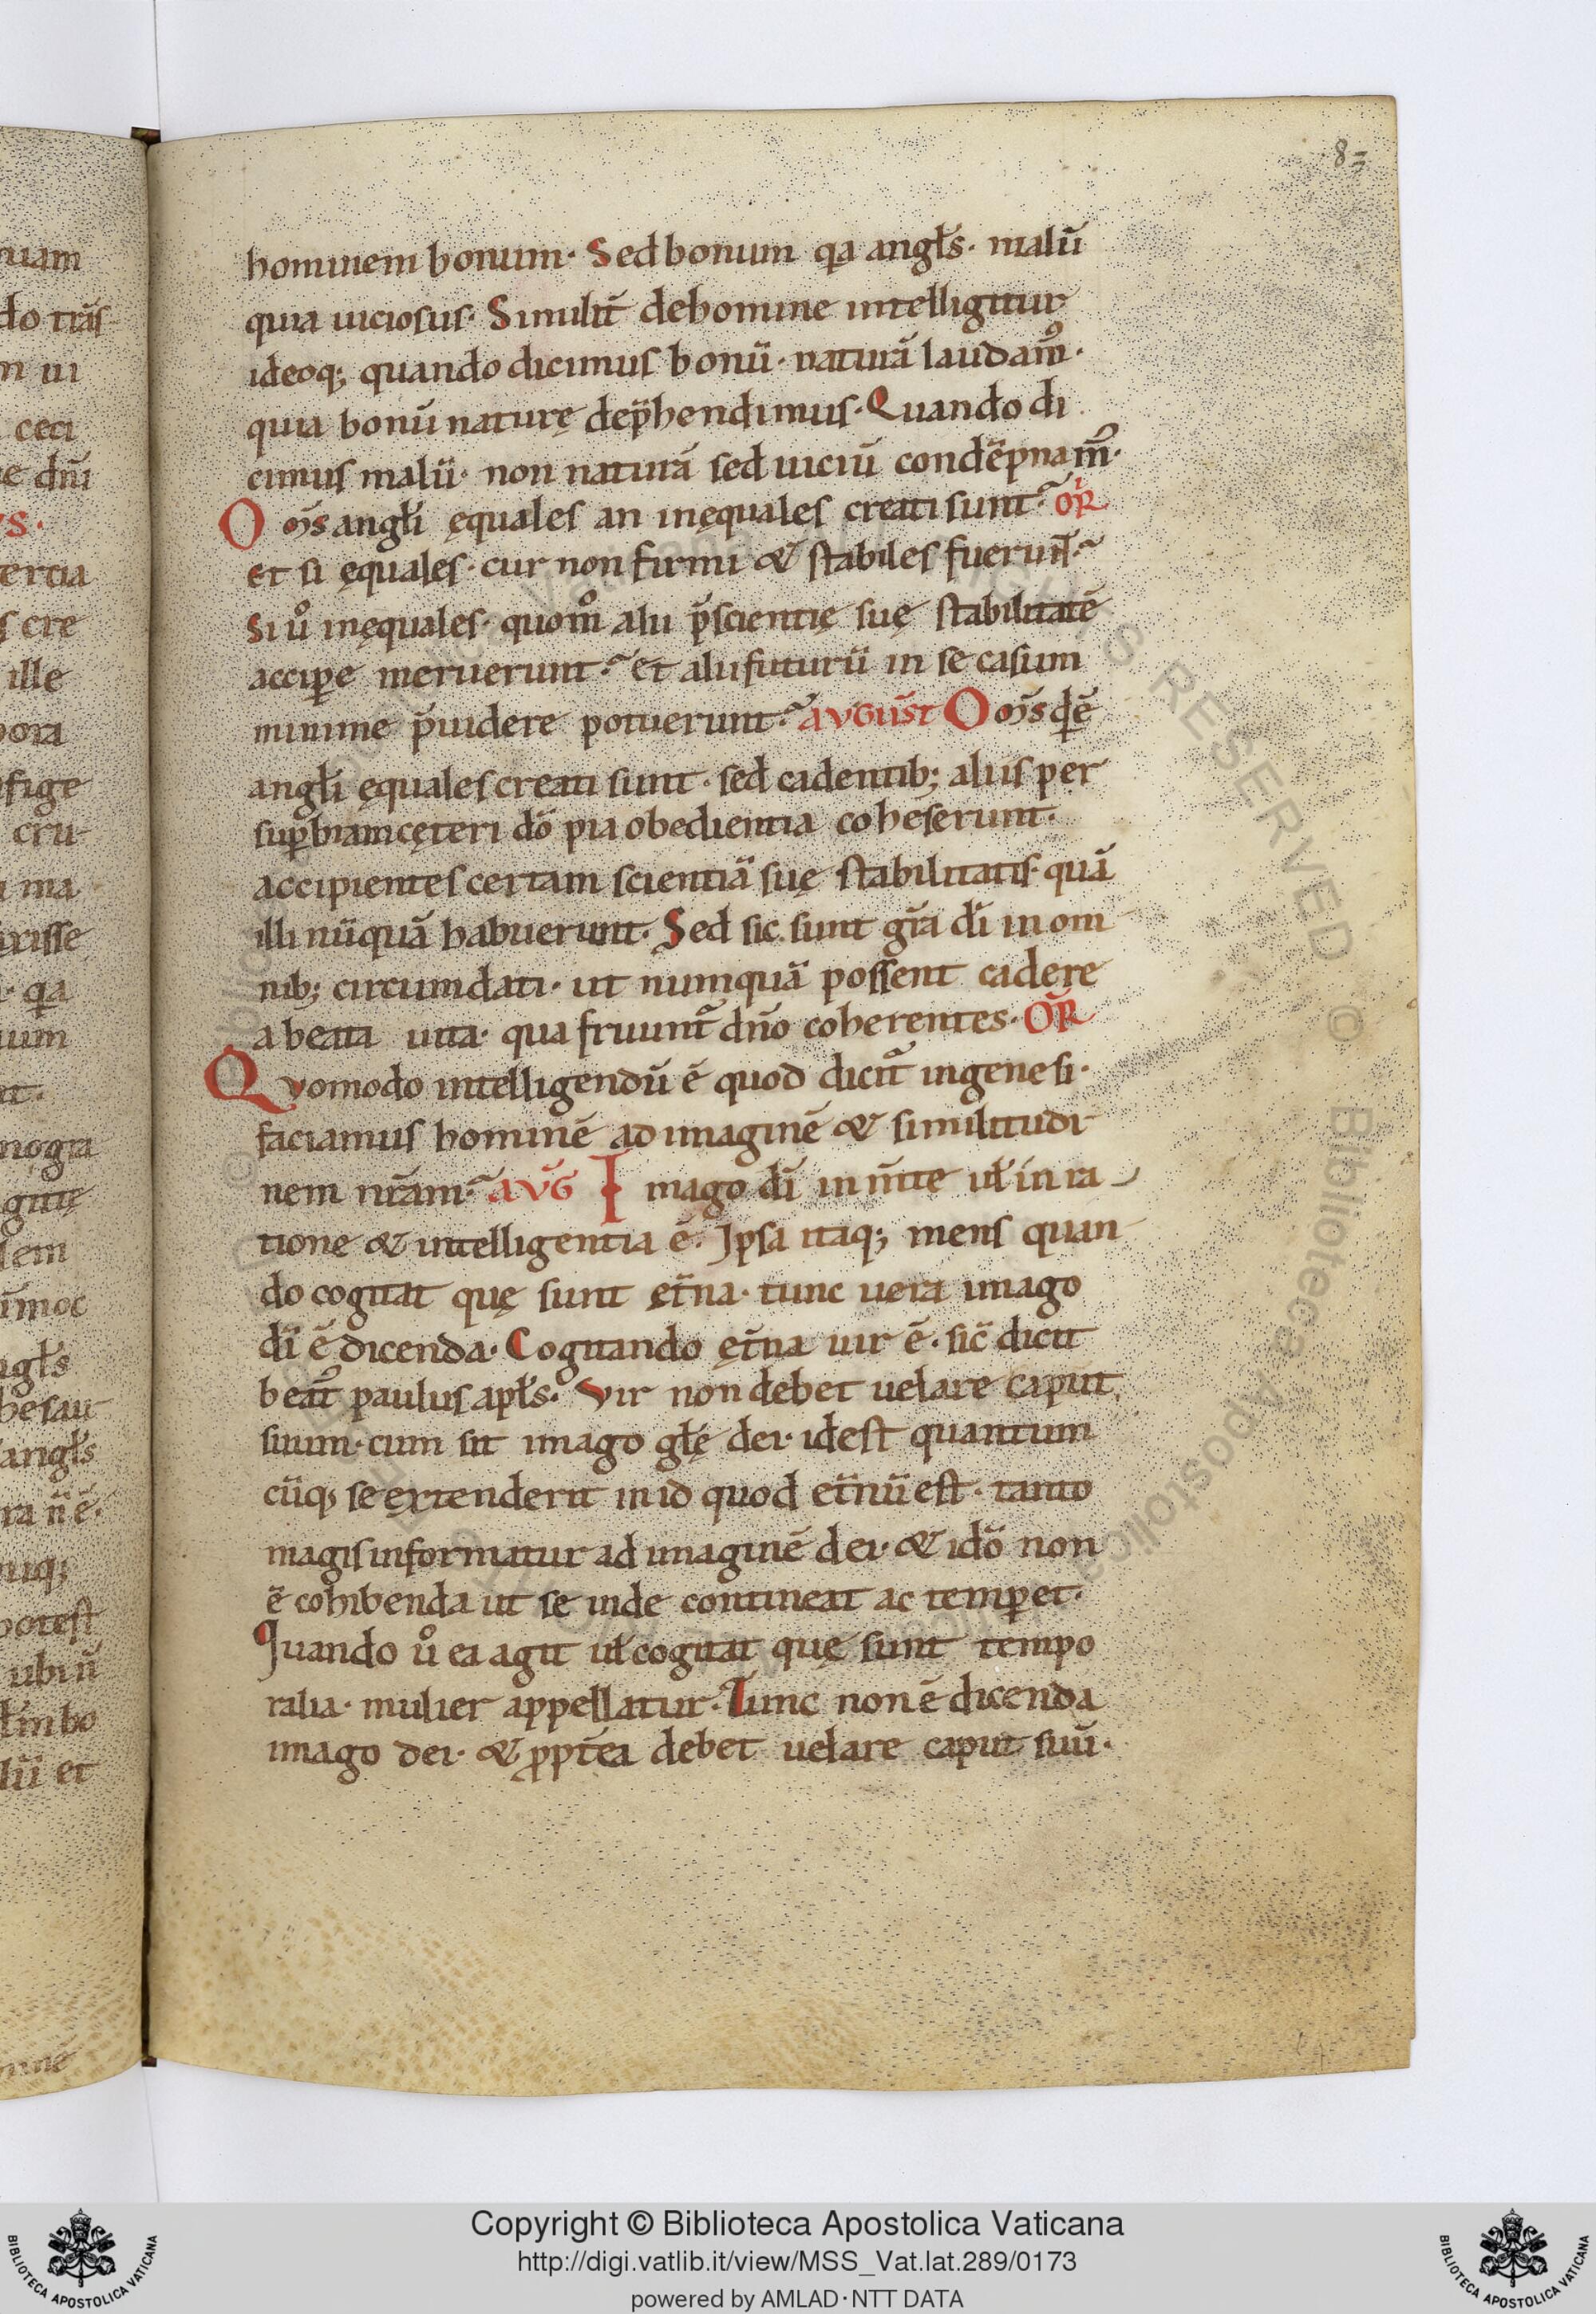 83
hominem bonum. Sed bonum q̢a angłs. malū
quia uiciosus. Similit̄ de homine intelligitur
ideoq; quando dicimus bonū. naturā laudam᷒.
quia bonū naturę dep̄hendimus. Quando di
cimus malū. non naturā sed uiciū condēpnam᷒.
Om̄s angłi ęquales an inęquales creati sunt? OR̄
et si ęquales. cur non firmi & stabiles fuerun̄t?
Si u͛o inęquales. quom̊ alii p̄scientię suę stabilitatē
accip̱e meruerunt? et alii futurū in se casum
minime p̄uidere potuerunt? AVGUST̄ Om̄s q̇dē
angłi ęquales creati sunt. sed cadentib; aliis per
sup̱biam cęteri dō pia obedientia coheserunt.
accipientes certam scientiā suę stabilitatis. quā
illi nūquā habuerunt. Sed sic sunt gr̄a dī in om
nib; circumdati. ut numquā possent cadere
a beata uita. qua fruunt᷑ dn̄o coherentes. OR̄
Quomodo intelligendū ē quod dicit᷑ in genesi.
faciamus hominē ad imaginē & similitudi
nem nr̄am? AVḠ Imago dī in m̄te uł in ra
tione & intelligentia ē. Ipsa itaq; mens quan
do cogitat quę sunt ęt̄na. tunc uera imago
dī ē dicenda. Cogitando ęt̄na uir ē. sic̄ dicit
beat᷒ paulus apłs. Vir non debet uelare caput
suum. cum sit imago głę dei. idest quantum
cūq; se extenderit in id quod et̄nū est. tanto
magis informatur ad imaginē dei. & idō non
ē cohibenda ut se inde contineat ac temp̱et.
Quando u͛o ea agit uł cogitat quę sunt tempo
ralia. mulier appellatur. Tunc non ē dicenda
imago dei. & ꝓpt̄ea debet uelare caput suū.
Copyright © Biblioteca Apostolica Vaticana
http://digi.vatlib.it/view/MSS_Vat.lat.289/0173
powered by AMLAD·NTT DATA